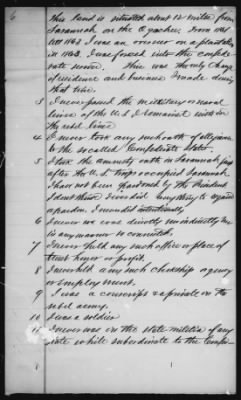 6
This land is situated about 12 miles from
Savannah on the Ogeechee. From 1861
till 1863 I was an overseer on a plantation
in 1863. I was forced into the confede-
rate service. This was the only change
of residence and business I made during
that time.
3 I never passed the military or naval
lines of the U.S. I remained inside
the rebel lines
4 I never took any such oath of allegiance
to the so called Confederate States.
5 I took the amnesty oath in Savannah just
after the U.S. troops occupied Savannah
I have not been pardoned by the President
I dont know I ever did anything to require
a pardon, I never did intentionally
6 I never was directly or indirectly
in any manner so connected.
7 I never held any such office or place of
trust honor or profit.
8 I never held any such clerkship agency
or employment.
9 I was a conscript & a private in the
rebel army.
10 I was a soldier
11 I never was in the state militia of any
state while subordinate to the Confed-